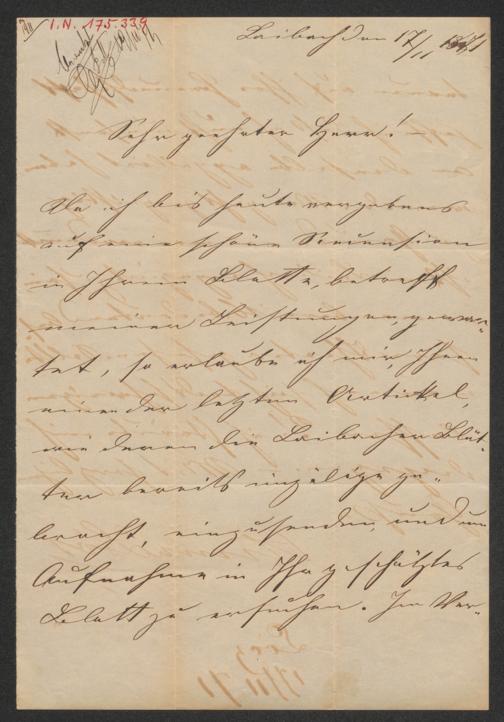 I.N. 175.339
Laibach den 17/11 1871
Sehr geehrter Herr! –
Da ich bis heute vergebens
auf eine schöne Recension
in Ihrem Blatte, betreff
meiner Leistungen, gewar-
tet, so erlaube ich mir, Ihnen
einen der letzten Artikkel,
wie deren die Laibacher Blät-
ter bereits unzälige ge-
bracht, einzusenden, und um
Aufnahme in Ihr geschätztes
Blatt zu ersuchen. Im Ver-